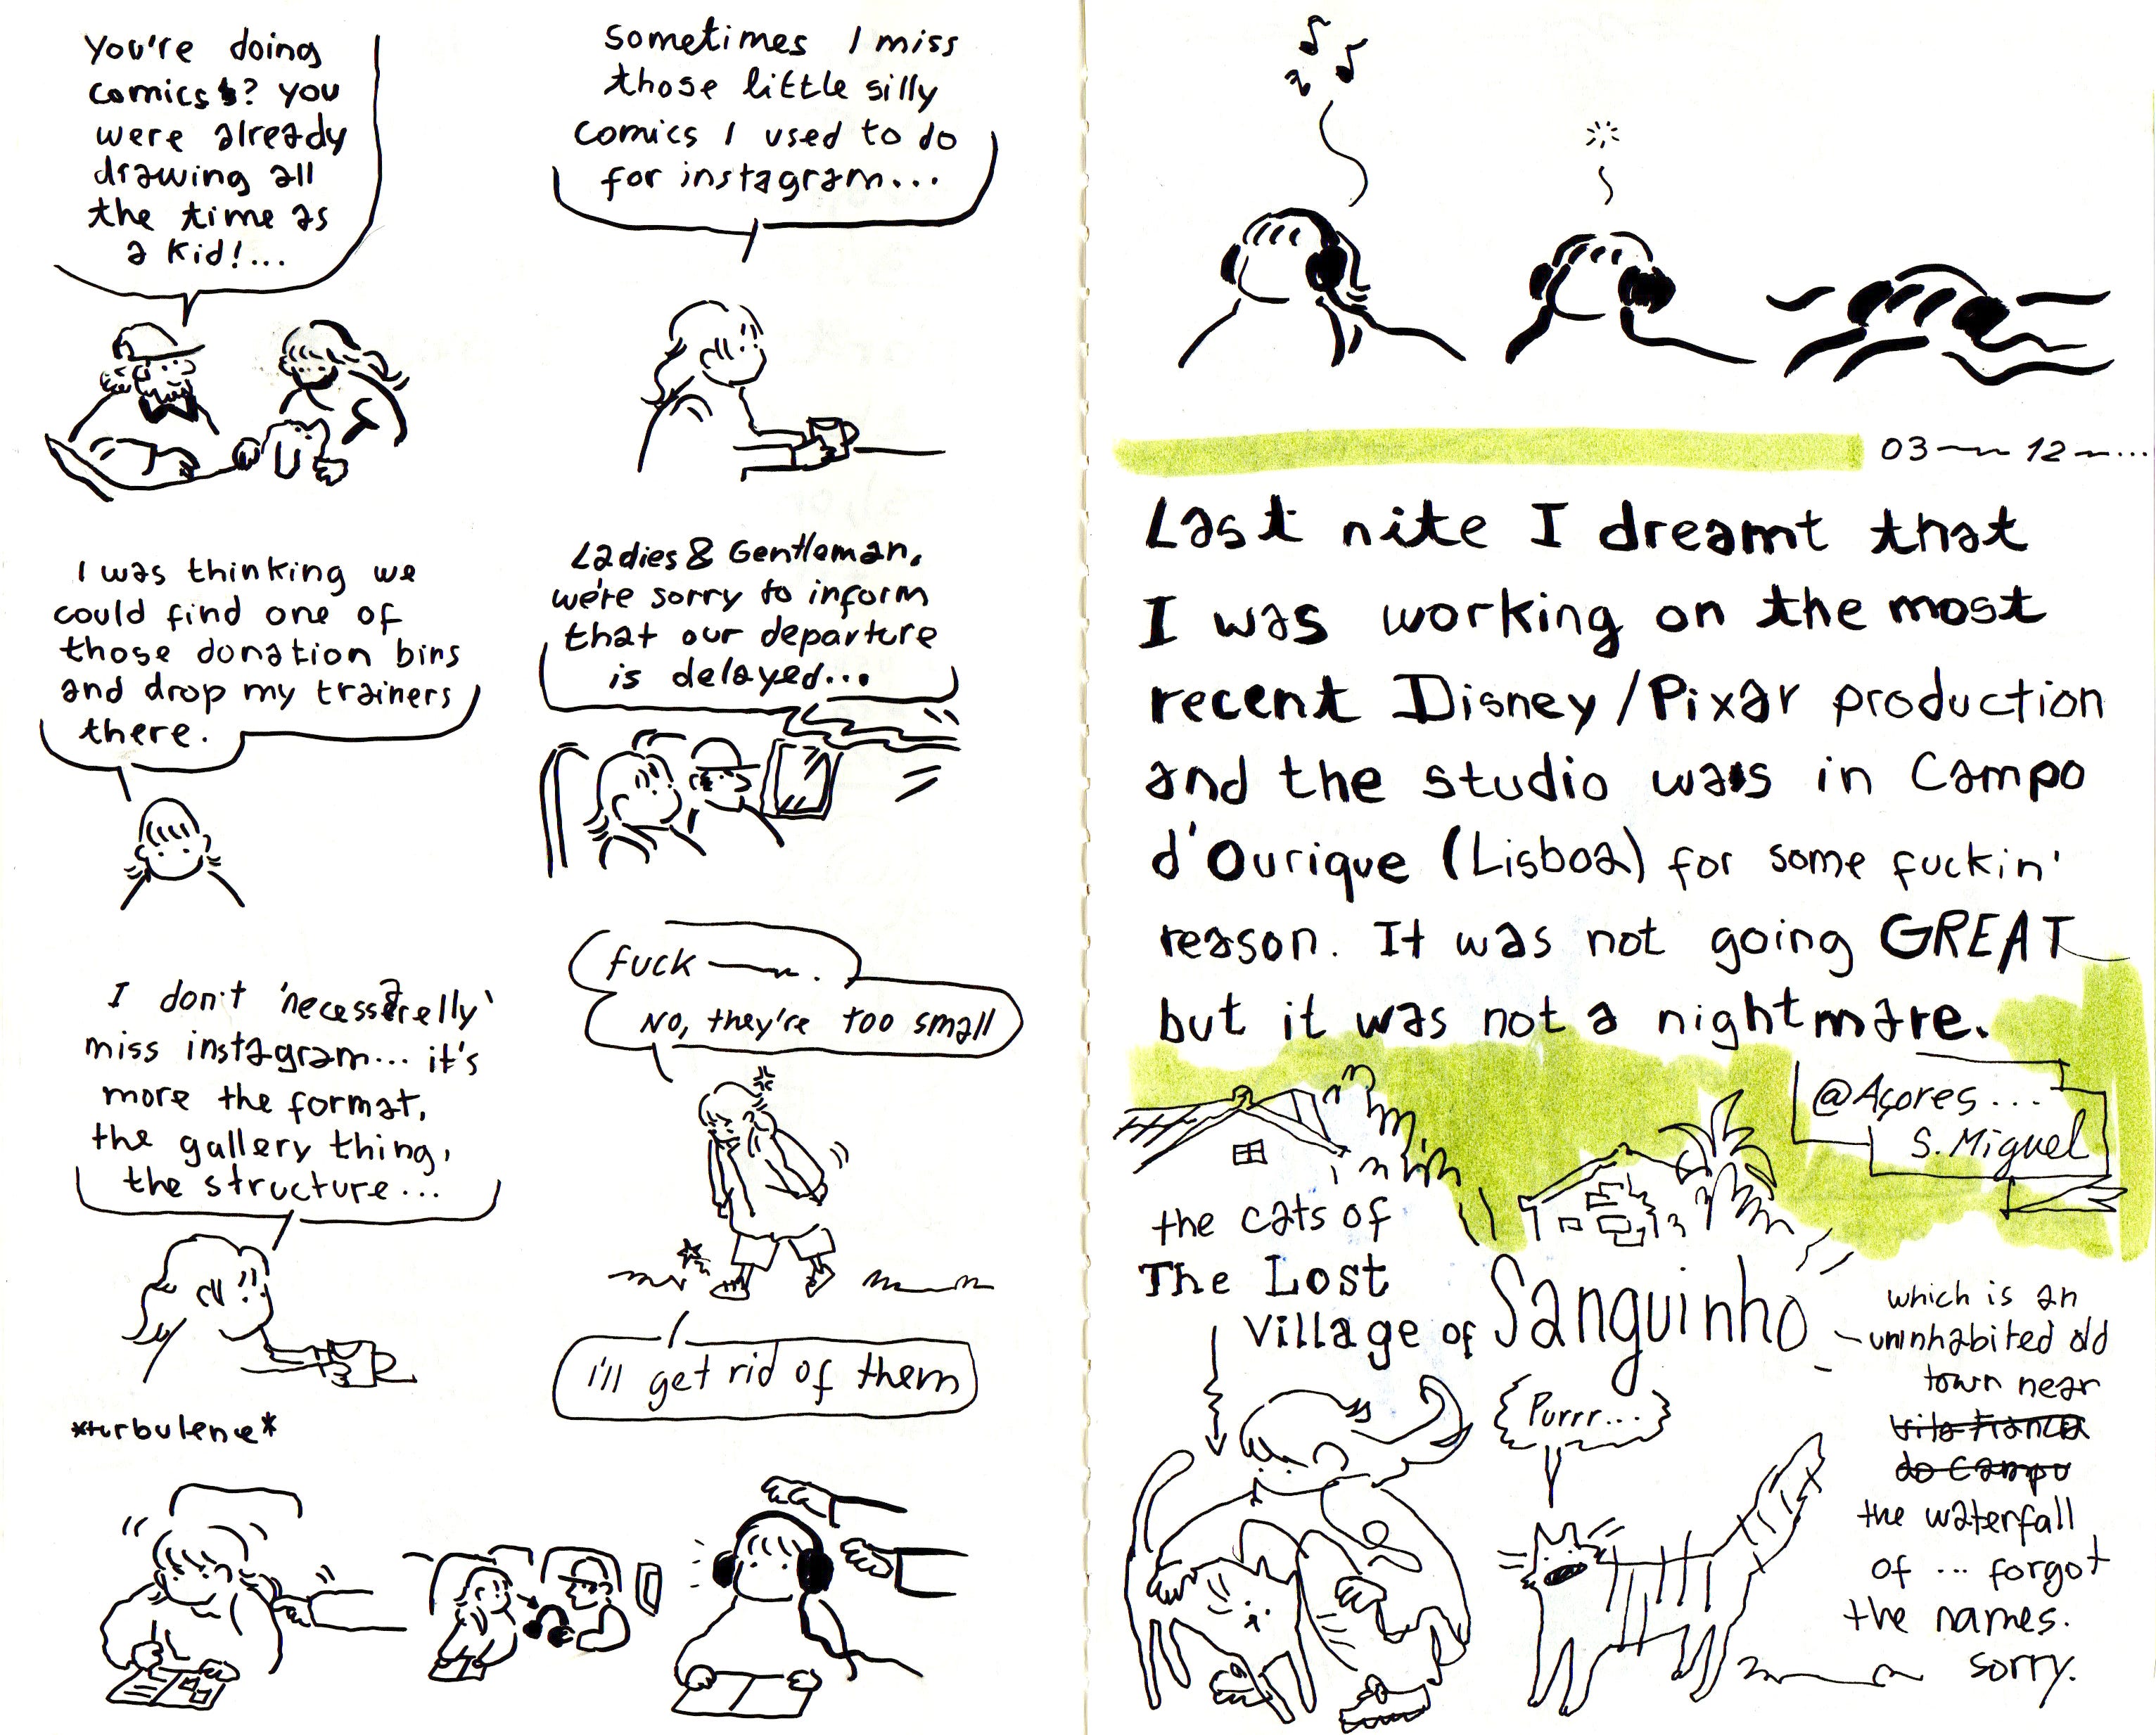 You're doing
comics? you
were already
drawing all
the time as
a kid!...
Sometimes I miss
those little silly
comics I used to do
for instagram...
I was thinking we
could find one of
those donation bins
and drop my trainers
there.
Ladies & Gentleman,
we're sorry to inform
that our departure
is delayed...
I don't 'necessarelly'
miss instagram... it's
more the format,
the gallery thing,
the structure...
fuck .
No, they're too small
i'll get rid of them
*turbulence*
03 12 ...
Last nite I dreamt that
I was working on the most
recent Disney/Pixar production
and the studio was in Campo
d'Ourique (Lisboa) for some fuckin'
reason. It was not going GREAT
but it was not a nightmare.
@Açores...
S. Miguel
the cats of
The Lost
Village of Sanguinho
which is an
uninhabited old
town near
vila Franca
do Campo
the waterfall
of ... forgot
the names.
sorry.
Purrr...